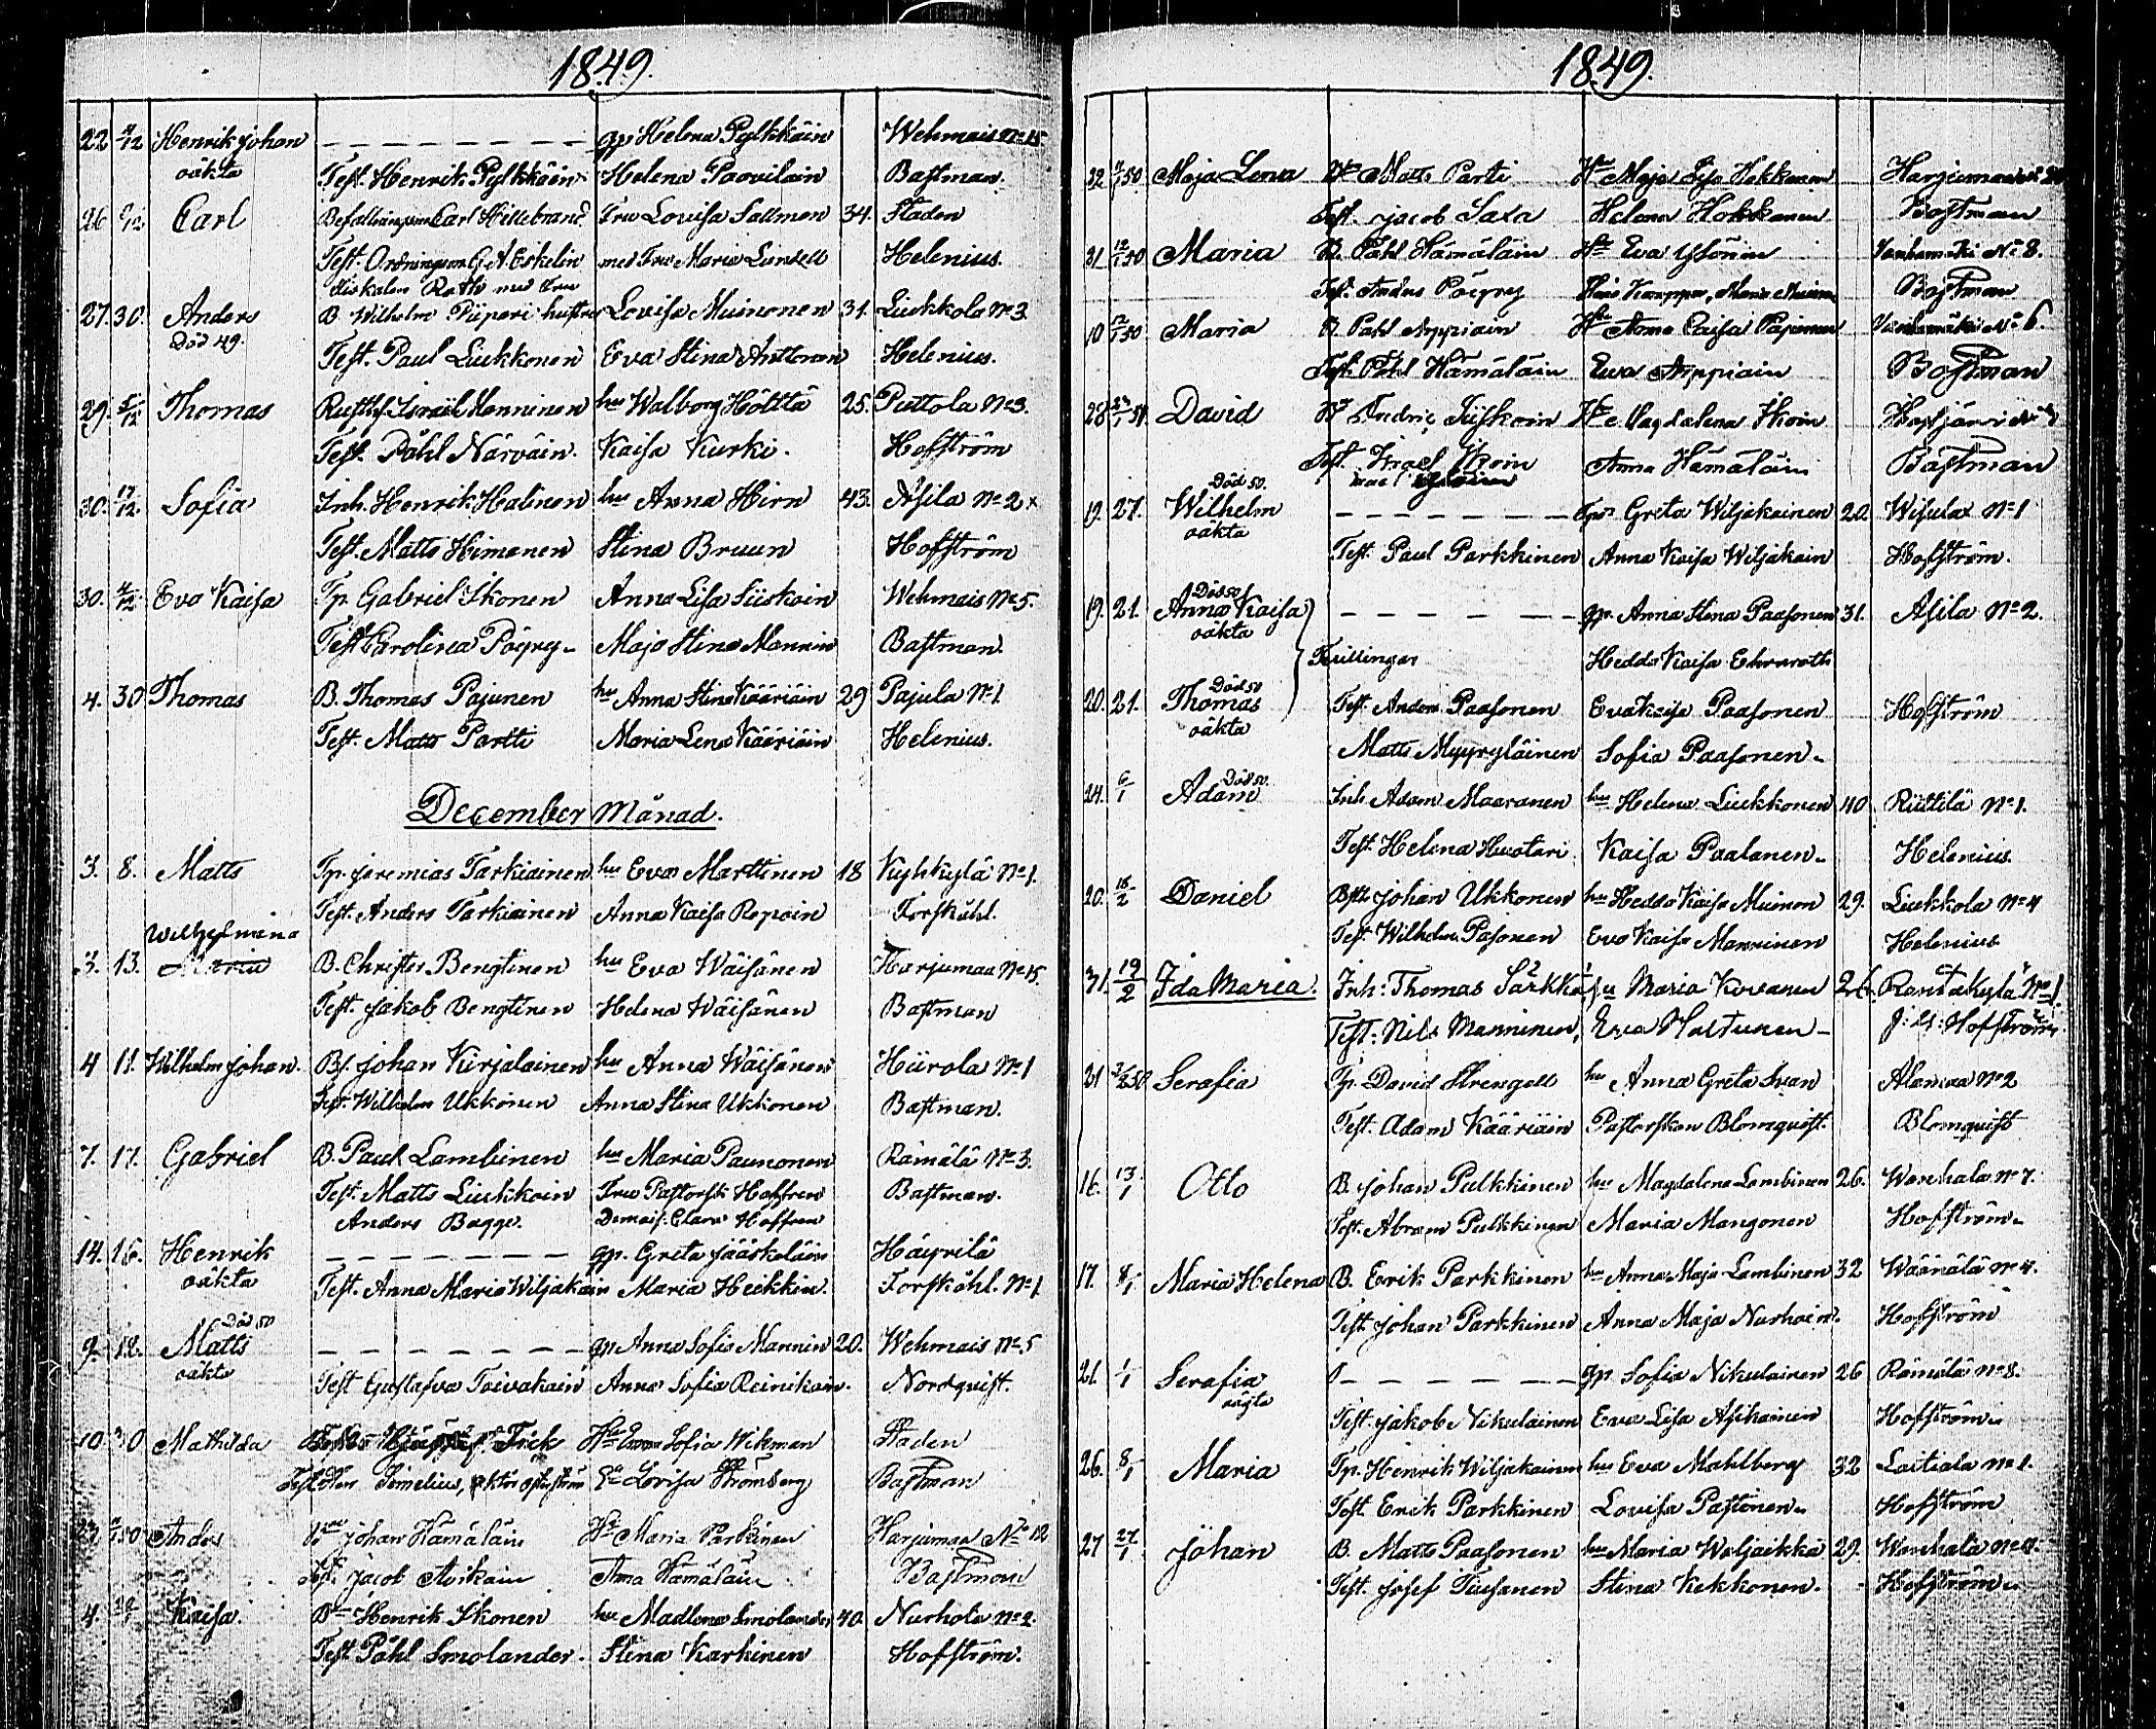 1849.
22 4/12 Henrik Johan – – – – – – – gp Helena Pylkkäin Wehmais No 15.
oäkta Test. Henrik Pylkkäin Helena Paovilain Bastman.
26 Carl Befallningsm Carl Hillebrand Fru Lovisa Sallmen 34. Staden
Test. Ordningsm G. A. Eskelin med Fru Maria Lundell Helenius.
Fiskalen Roth med Fru
27. 30. Anders B. Wilhelm Piipari hustru Lovisa Muinonen 31. Liukkola No 3
Död 49. Test. Paul Liukkonen Eva Stina Anttonen Helenius.
29. 5/12 Thomas Rusthf. Israël Manninen hu Walborg Hölttä 25. Puttola No 3.
Test. Påhl Närväin. Kaisa Kurki. Hofström
30. 17/12 Sofia Inh. Henrik Halinen hu Anna Hirn 43. Asila No 2 x
Test. Matts Himanen Stina Bruun Hofström
30. 4/12 Eva Kaisa Tp. Gabriel Ikonen Anna Lisa Siiskoin Wehmais No 5.
Test Carolina Pöyry. Maja Stina Mannin Bastman.
4. 30 Thomas B. Thomas Pajunen hu Anna Stina Kääriäin 29 Pajula No 1
Test. Matts Partti Maria Lena Kääriäin Helenius.
December Månad.
3. 8. Matts Tp. Jeremias Tarkiainen hu Eva Marttinen 18 Kyhkylä No 1.
Test. Anders Tarkiainen Anna Kaisa Repoin Forsståhl.
Wilhelmina
3. 13. Maria B. Christer Bengtinen hu Eva Wäisänen Harjumaa No 15.
Test. Jakob Bengtinen Helena Wäisänen Bastman
4 11. Wilhelm Johan. Bs. Johan Kirjalainen hu Anna Wäisänen Hiirola No 1
Test. Wilhelm Ukkonen Anna Stina Ukkonen Bastman.
7. 17. Gabriel B. Paul Lambinen hu Maria Paunonen Rämälä No 3.
Test. Matts Liukkoin Fru Pastorsk Hoffren Bastman.
Anders Bagge. Demois. Clara Hoffren
14. 16. Henrik – – – – – – – gp. Greta Jääskeläin Häyrilä
oäkta Test. Anna Maria Wiljakain Maria Heikkin. Forsståhl. No 1
Död 50
9. 12. Matts – – – – – – – gp Anna Sofia Mannin 20. Wehmais No 5
oäkta Test Gustafva Toivakain Anna Sofia Reinikain. Nordquist.
10. 30 Mathilda Fick Hu Sofia Wikman Staden
Test. Herr Simelius, Lovisa Strömberg Bastman
Anders Johan Hämäläin Hu Maria Parkinen Harjumaa No 12
Test. Jacob Asikain Anna Hämäläin Bastman
4. Kaisa. Henrik Ikonen hu Madlena Smolander 40. Nurhola No 2.
Test. Påhl Smolander. Stina Karkinen Hofström.
1849.
22 50 Maja Lena Matts Parti Hu Maja Lisa Hokkanen Harjumaa
Test. Jacob Saxa Helena Hokkanen Bastman
31 12/1 50 Maria B. Påhl Hämäläin Hu Eva Ylönin Vanhamäki No 8.
Test. Anders Pöyry Bastman
10 12/1 50 Maria B. Påhl Arppiain Hu Anna Caisa Pajunen Vanhamäki No 6.
Test. Påhl Hämäläin Ewa Arppiain Bastman
28 David Fredric Siiskoin Hu Magdalena Ikoin
Test. Israel Ikoin Anna Hämäläin Bastman
Död 50.
19. 27. Wilhelm – – – – – – Greta Wiljakainen 20. Wisulax No 1
oäkta Test. Paul Parkkinen Anna Kaisa Wiljakain Hofström.
Död 50
19. 21. Anna Kaisa – – – – – – gp. Anna Stina Paasonen 31. Asila No 2.
oäkta
Tvillingar Hedda Kaisa Ehrnroth
Död 50
20. 21. Thomas Test. Anders Paasonen Eva Kaisa Paasonen Hofström
oäkta Matts Myyryläinen Sofia Paasonen.
Död 50.
24. 6/1 Adam Inh Adam Maaranen hu Helena Liukkonen 40 Riittilä No 1.
Test. Helena Huotari Kaisa Paalanen. Helenius.
20. 18/2 Daniel Johan Ukkonen hu Hedda Kaisa Muinon 29. Liukkola No 4
Test. Wilhelm Pasonen Eva Kaisa Manninen Helenius
31. 19/2 Ida Maria. Inh: Thomas Särkkä hu Maria Kovanen 26. Rantakylä No 1.
Test: Nils Manninen, Eva Hastunen – Hofström
21 50. Serafia Tp. David Strengell hu Anna Greta Svan Alamaa No 2
Test. Adam Kääriäin Pastorskan Blomquist. Blomquist
16. 13/1 Otto B. Johan Pulkkinen hu Magdalena Lambinen 26. Wanhala No 7.
Test. Abram Pulkkinen Maria Mangonen Hofström.
17. 8/1 Maria Helena B. Erik Parkkinen hu Anna Maja Lambinen 32 Wäänälä No 4.
Test. Johan Parkkinen Anna Maja Nurhoin. Hofström
21. 1/1 Serafia – – – – – – gp. Sofia Nikulainen 26 Rämälä No 8.
oägta Test. Jakob Nikulainen Eva Lisa Asikainen Hofström.
26. 8/1 Maria Tp. Henrik Wiljakainen hu Eva Mahlberg 32 Laitiala No 1.
Test. Erik Parkkinen Lovisa Pastinen. Hofström
27 27/1 Johan B. Matts Paasonen hu Maria Waljaikka 29. Wanhala
Test. Josef Tiusanen Stina Kekkonen. Hofström.